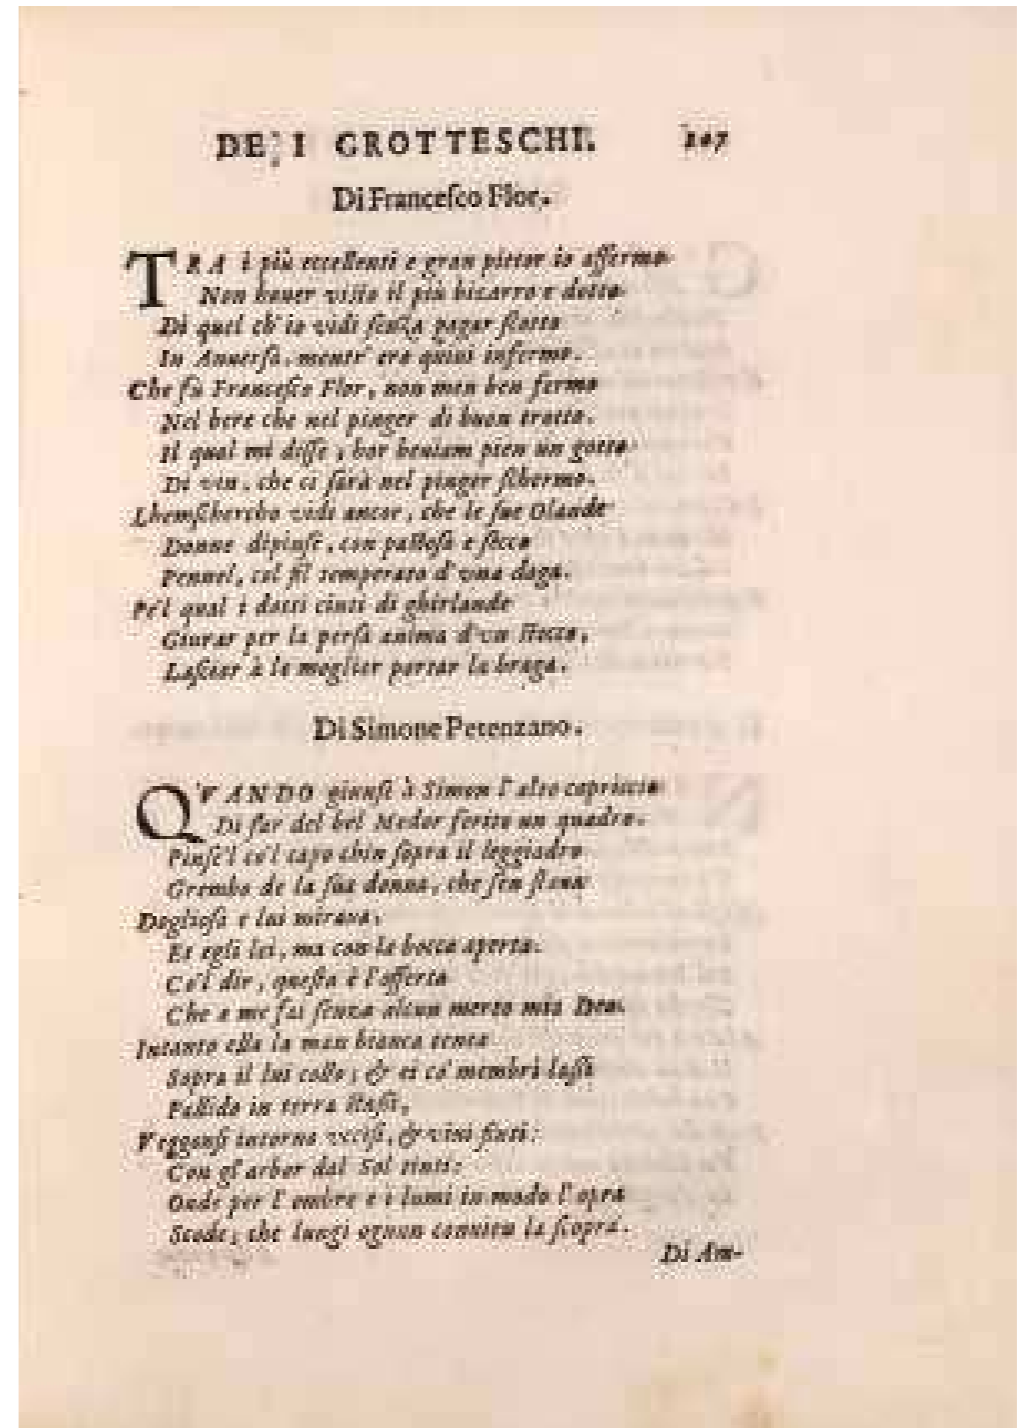 DE I GROTTESCHI. 107
Di Franceſco Flor.
TRA i più eccellenti e gran pittor io affermo
Non hauer viſto il più bizarro e dotto
Di quel ch'io vidi ſenza pagar ſcotto
In Anuerſa, mentr' era quiui infermo.
Che fù Franceſco Flor, non men ben fermo
Nel bere che nel pinger di buon trotto.
Il qual mi diſſe, hor beuiam pien un gotto
Di vin, che ci ſarà nel pinger ſchermo.
Lhemſchercho vidi ancor, che le ſue Olande
Donne dipinſe, con paſtoſa e ſecco
Pennel, col fil temperato d'vna daga.
Pe'l qual i dotti cinti di ghirlande
Giurar per la perſa anima d'vn ſtecco,
Laſciar à le moglier portar la braga.
Di Simone Petenzano.
QVANDO giunſe à Simon l'alto capriccio
Di far del bel Medor ferito un quadro.
Pinſe'l co'l capo chin ſopra il leggiadro
Grembo de la ſua donna, che ſen ſtaua
Doglioſa e lui miraua,
Et egli lei, ma con la bocca aperta.
Co'l dir, queſta è l'offerta
Che a me fai ſenza alcun merto mia Dea.
Intanto ella la man bianca tenea
Sopra il lui collo; & ei co' membri laſſi
Pallido in terra ſtaſſi,
Veggonſi intorno vcciſi, & viui finti:
Con gl'arbor dal Sol tinti:
Onde per l'ombre e i lumi in modo l'opra
Scode, che lungi ognun conuien la ſcopra.
Di Am-